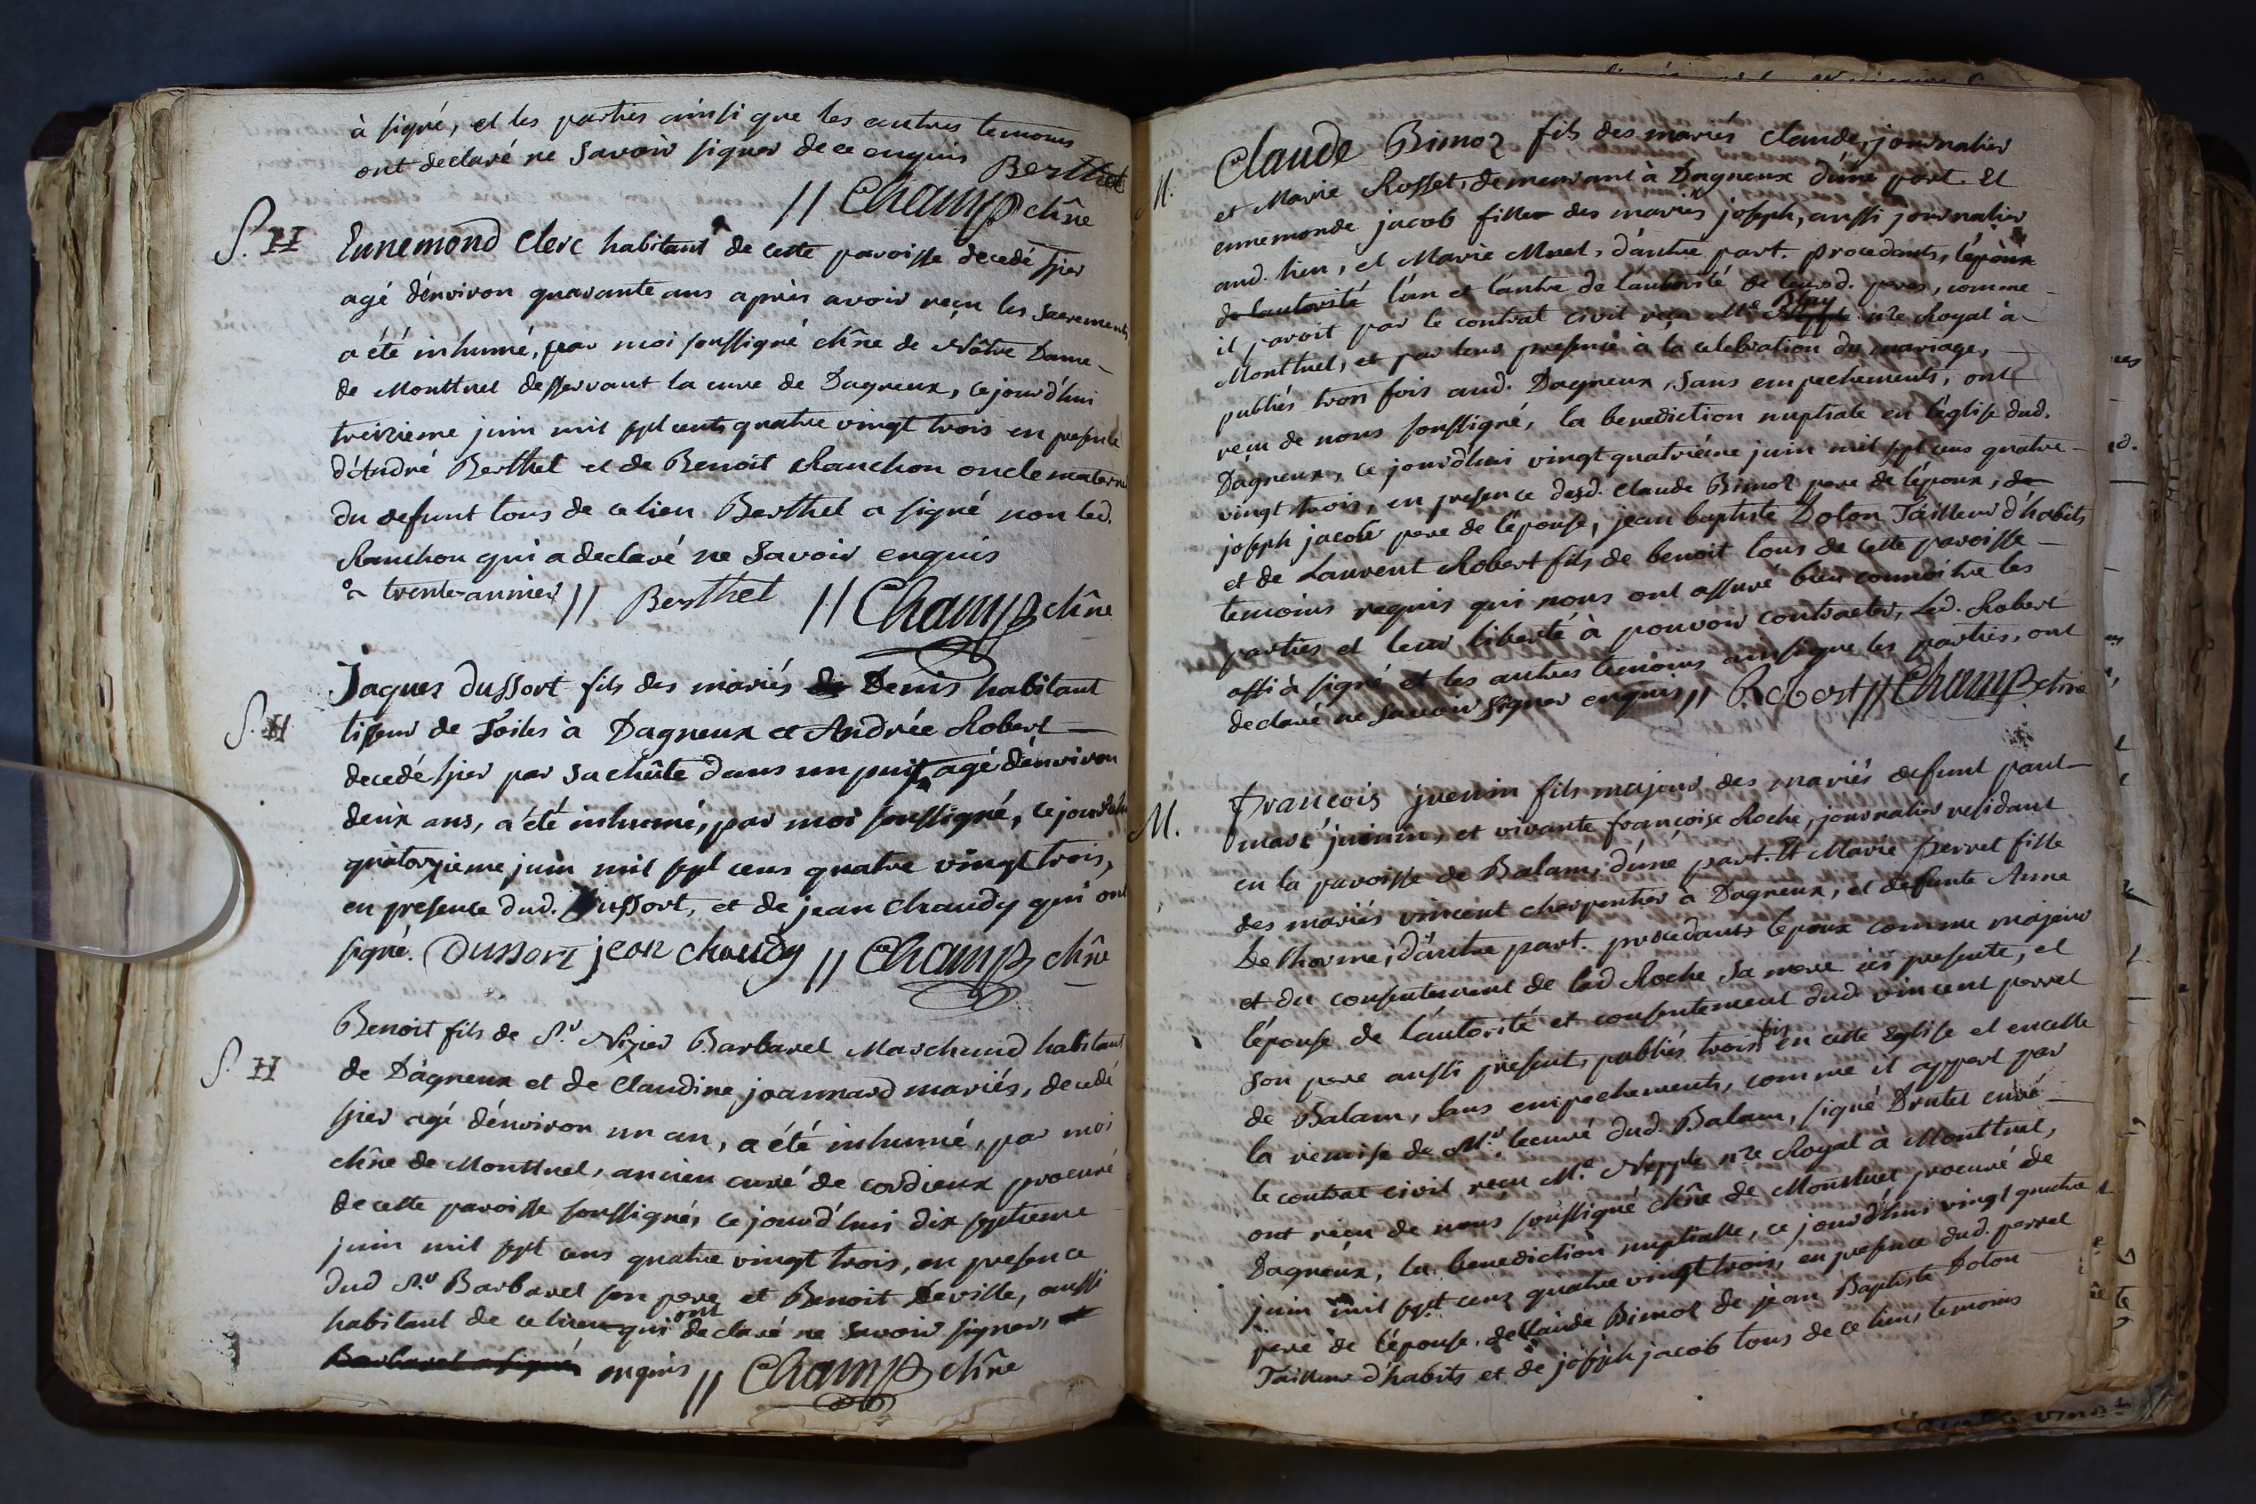 à signé, et les parties ainsi que les autres temoins
ont declaré ne savoir signer de ce enquis Berthet
// Champ chne
S. H Ennemond Clerc habitant de cette paroisse decedé hier
agé d'environ quarante ans après avoir reçu les sacrements
a été inhumé, par moi soussigné chne de Nôtre Dame
de Montluel desservant la cure de Dagneux, ce jourd'hui
treizieme juin mil sept cents quatre vingt trois en presence
d'André Berthet et de Benoit Ranchon oncle maternel
du defunt tous de ce lieu Berthet a signé non led.
Ranchon qui a declaré ne savoir enquis
à trente années // Berthet // Champ chne
Jaques dussort fils des mariés de Denis habitant
S. H tisseur de toiles à Dagneux et Andrée Robert
decedé hier par sa chûte dans un puit, agé d'environ
deux ans, a été inhumé, par moi soussigné, ce jourd'hui
quatorzieme juin mil sept cens quatre vingt trois,
en presence dud. Dussort, et de jean chaudy qui ont
signé. Dussort jean chaudy // Champ chne
Benoit fils de Sr. Nizier Barbaret Marchand habitant
S. H de Dagneux et de Claudine joannard mariés, decedé
hier agé d'environ un an, a été inhumé, par moi
chne de Montluel, ancien curé de cordieux procuré
de cette paroisse soussigné, ce jourd'hui dix septieme
juin mil sept cens quatre vingt trois, en presence
dud Sr Barbaret son pere et Benoit Deville, aussi
habitant de ce lieu qui ont declaré ne savoir signer, et
Barbaret a signé enquis // Champ chne
Claude Bimoz fils des mariés claude, journalier
M. et Marie Rosset, demeurant à Dagneux d'une part. Et
ennemonde jacob fille des mariés joseph, aussi journalier
aud. lieu, et Marie Muet, d'autre part. procedants, l'époux
de lautorité l'un et l'autre de l'autorité de leursd. peres, comme
il paroit par le contrat civil reçu Me nre Royal à
Montluel, et par leur presence a la celebration du mariage,
publiés trois fois aud. Dagneux, sans empechements, ont
reçu de nous soussigné, la benediction nuptiale en l'église dud.
Dagneux, ce jourd'hui vingt quatriéme juin mil sept cens quatre
vingt trois, en presence desd. claude Bimoz pere de l'époux, de
joseph jacob pere de l'épouse, jean baptiste Dolon Tailleur d'habits
et de Laurent Robert fils de benoit tous de cette paroisse
temoins requis qui nous ont assuré bien connoitre les
parties et leur liberté à pouvoir contracter, Led. Robert
assi à signé et les autres temoins ainsi que les parties, ont
declaré ne savoir signer enquis // Robert // Champ chne
François juenin fils majeur des mariés defunt paul
M. marc juenin, et vivante françoise Roche, journalier residant
en la paroisse de Balam, d'une part. Et Marie perret fille
des mariés vincent charpentier à Dagneux, et defunte Anne
De lhorme, d'autre part. procedants l'epoux comme majeur
et du consentement de lad Roche sa mere ici presente, et
l'épouse de l'autorité et consentement dud. vincent perret
son pere aussi present, publiés trois fois en cette eglise et en celle
de Balam, sans empechements, comme il appert par
la remise de Mr. le curé dud. Balam, signé Drutel curé
le contrat civil reçu Me. Nepple nre Royal à Montluel,
ont reçu de nous soussigné chne de Montluel procuré de
Dagneux, la benediction nuptialle, ce jourd'hui vingt quatre
juin mil sept cens quatre vingt trois, en presence dud. perret
pere de l'épouse, de claude Bimoz de jean Baptiste Dolon
Tailleur d'habits et de joseph jacob tous de ce lieu, temoins